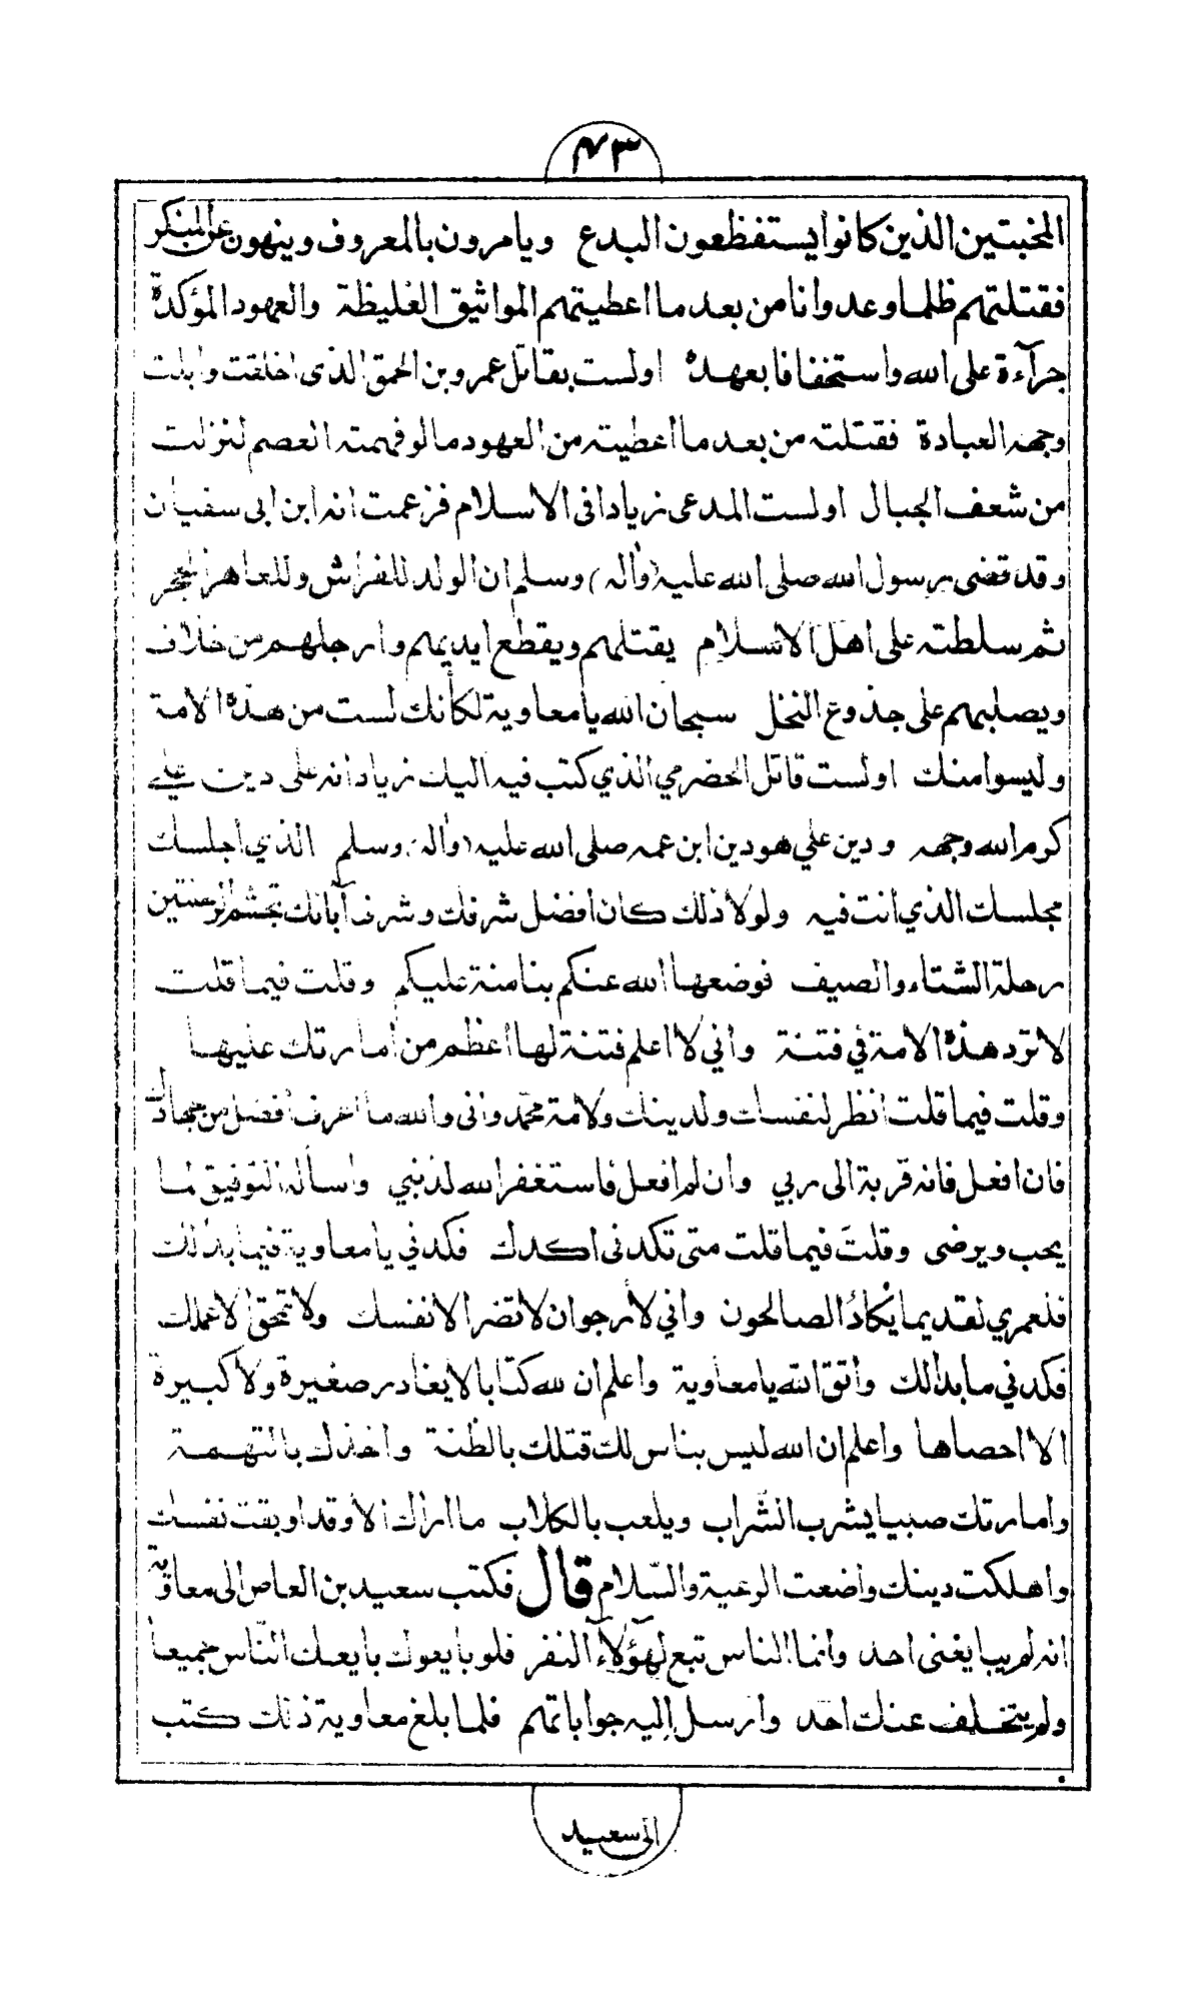 ٤٣
المخبتين الذين كانوا يستفظعون البدع ويامرون بالمعروف وينهون عن المنكر
فقتلتهم ظلما وعدوانا من بعد ما اعطيتهم المواثيق الغليظة والعهود المؤكدة
جرآءة على الله واستخفافا بعهده اولست بقاتل عمرو بن الحمق الذى اخلقت وابلت
وجهه العبادة فقتلته من بعد ما اعطيته من العهود ما لو فهمته العصم لنزلت
من شعف الجبال اولست المدعى زيادا فى الاسلام فزعمت انه ابن ابى سفيان
وقد قضى رسول الله صلى الله عليه (وآله) وسلم ان الولد للفراش وللعاهر الحجر
ثم سلطته على اهل الاسلام يقتلهم ويقطع ايديهم وارجلهم من خلاف
ويصلبهم على جذوع النخل سبحان الله يا معاوية لكأنك لست من هذه الامة
وليسوا منك اولست قاتل الحضرمي الذي كتب فيه اليك زياد انه على دين علي
كرم الله وجهه ودين علي هو دين ابن عمه صلى الله عليه (وآله) وسلم الذي اجلسك
مجلسك الذي انت فيه ولولا ذلك كان افضل شرفك وشرف آبائك تجشم الرحلتين
رحلة الشتاء والصيف فوضعها الله عنكم بنا منة عليكم وقلت فيما قلت
لا ترد هذه الامة في فتنة واني لا اعلم فتنة لها اعظم من امارتك عليها
وقلت فيما قلت انظر لنفسك ولدينك ولامة محمد وانى والله ما اعرف افضل من جهادك
فان افعل فانه قربة الى ربي وان لم افعل فاستغفر الله لذنبي واسأله التوفيق لما
يحب ويرضى وقلت فيما قلت متى تكدنى اكدك فكدني يا معاوية فيما بدالك
فلعمري لقديما يكاد الصالحون واني لأرجو ان لا تضر الا نفسك ولا تمحق الا عملك
فكدني ما بدالك واتق الله يا معاوية واعلم ان لله كتابا لا يغادر صغيرة ولا كبيرة
الا احصاها واعلم ان الله ليس بناس لك قتلك بالظنة واخذك بالتهمة
وامارتك صبيا يشرب الشّراب ويلعب بالكلاب ما اراك الا وقد اوبقت نفسك
واهلكت دينك واضعت الرعية والسّلام قال فكتب سعيد بن العاص الى معاوية
انه لم يبايعنى احد وانما الناس تبع لهؤلآء النفر فلو بايعوك بايعك النّاس جميعا
ولم يتخلف عنك احد وارسل إليه جواباتهم فلما بلغ معاوية ذلك كتب
الى سعيد